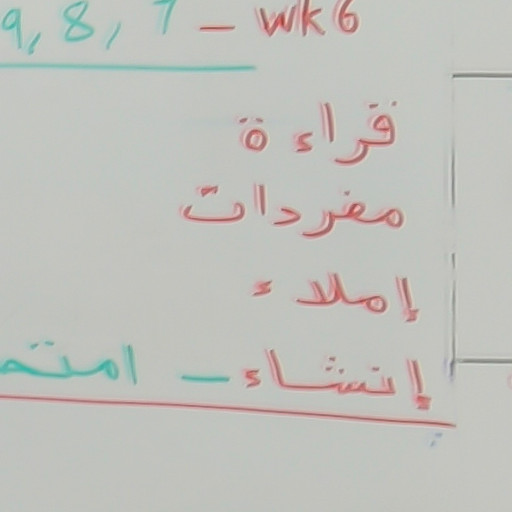 9, 8, 7 - wk6
قراءة
مفردات
إملاء
إنشاء -